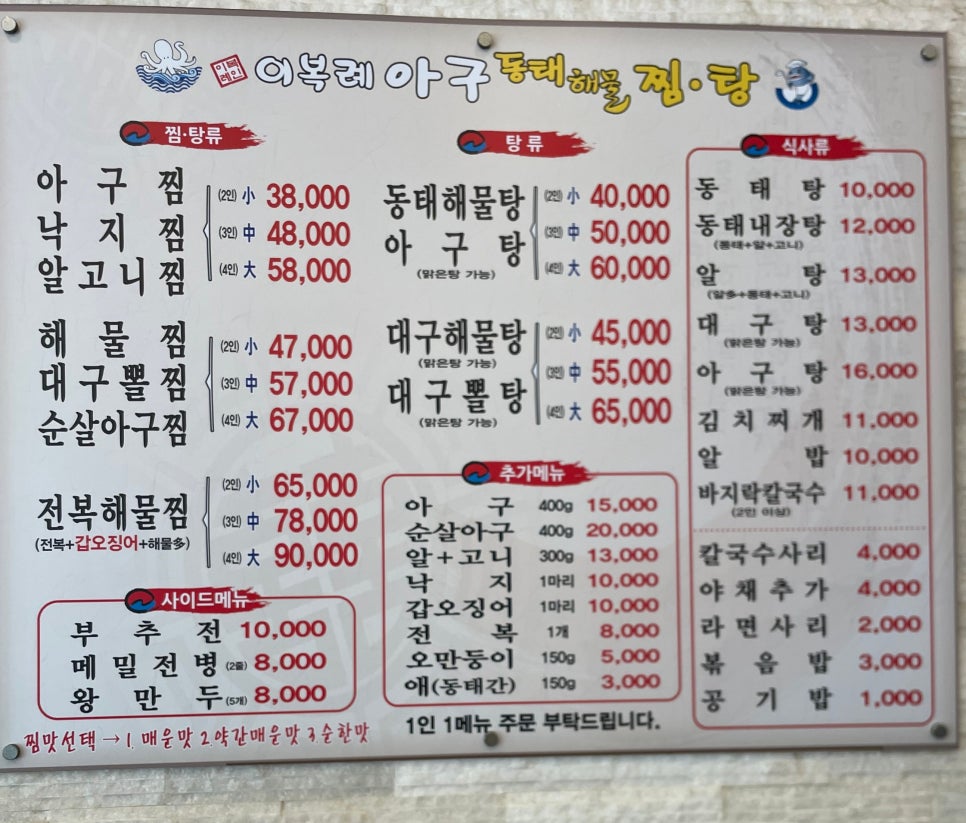 이복례인
이복례 아구 동태 해물 찜·탕
찜·탕류
아구찜
낙지찜
알고니찜
(2인) 小 38,000
(3인) 中 48,000
(4인) 大 58,000
해물찜
대구뽈찜
순살아구찜
(2인) 小 47,000
(3인) 中 57,000
(4인) 大 67,000
전복해물찜
(전복+갑오징어+해물多)
(2인) 小 65,000
(3인) 中 78,000
(4인) 大 90,000
사이드메뉴
부추전 10,000
메밀전병 (2줄) 8,000
왕만두 (5개) 8,000
찜맛선택 → 1. 매운맛 2.약간매운맛 3.순한맛
탕류
동태해물탕
아구탕
(맑은탕 가능)
(2인) 小 40,000
(3인) 中 50,000
(4인) 大 60,000
대구해물탕
(맑은탕 가능)
대구뽈탕
(맑은탕 가능)
(2인) 小 45,000
(3인) 中 55,000
(4인) 大 65,000
추가메뉴
아구 400g 15,000
순살아구 400g 20,000
알+고니 300g 13,000
낙지 1마리 10,000
갑오징어 1마리 10,000
전복 1개 8,000
오만둥이 150g 5,000
애(동태간) 150g 3,000
1인 1메뉴 주문 부탁드립니다.
식사류
동태탕 10,000
동태내장탕 12,000
(동태+알+고니)
알탕 13,000
(알多+동태+고니)
대구탕 13,000
(맑은탕 가능)
아구탕 16,000
(맑은탕 가능)
김치찌개 11,000
알밥 10,000
바지락칼국수 11,000
(2인 이상)
칼국수사리 4,000
야채추가 4,000
라면사리 2,000
볶음밥 3,000
공기밥 1,000